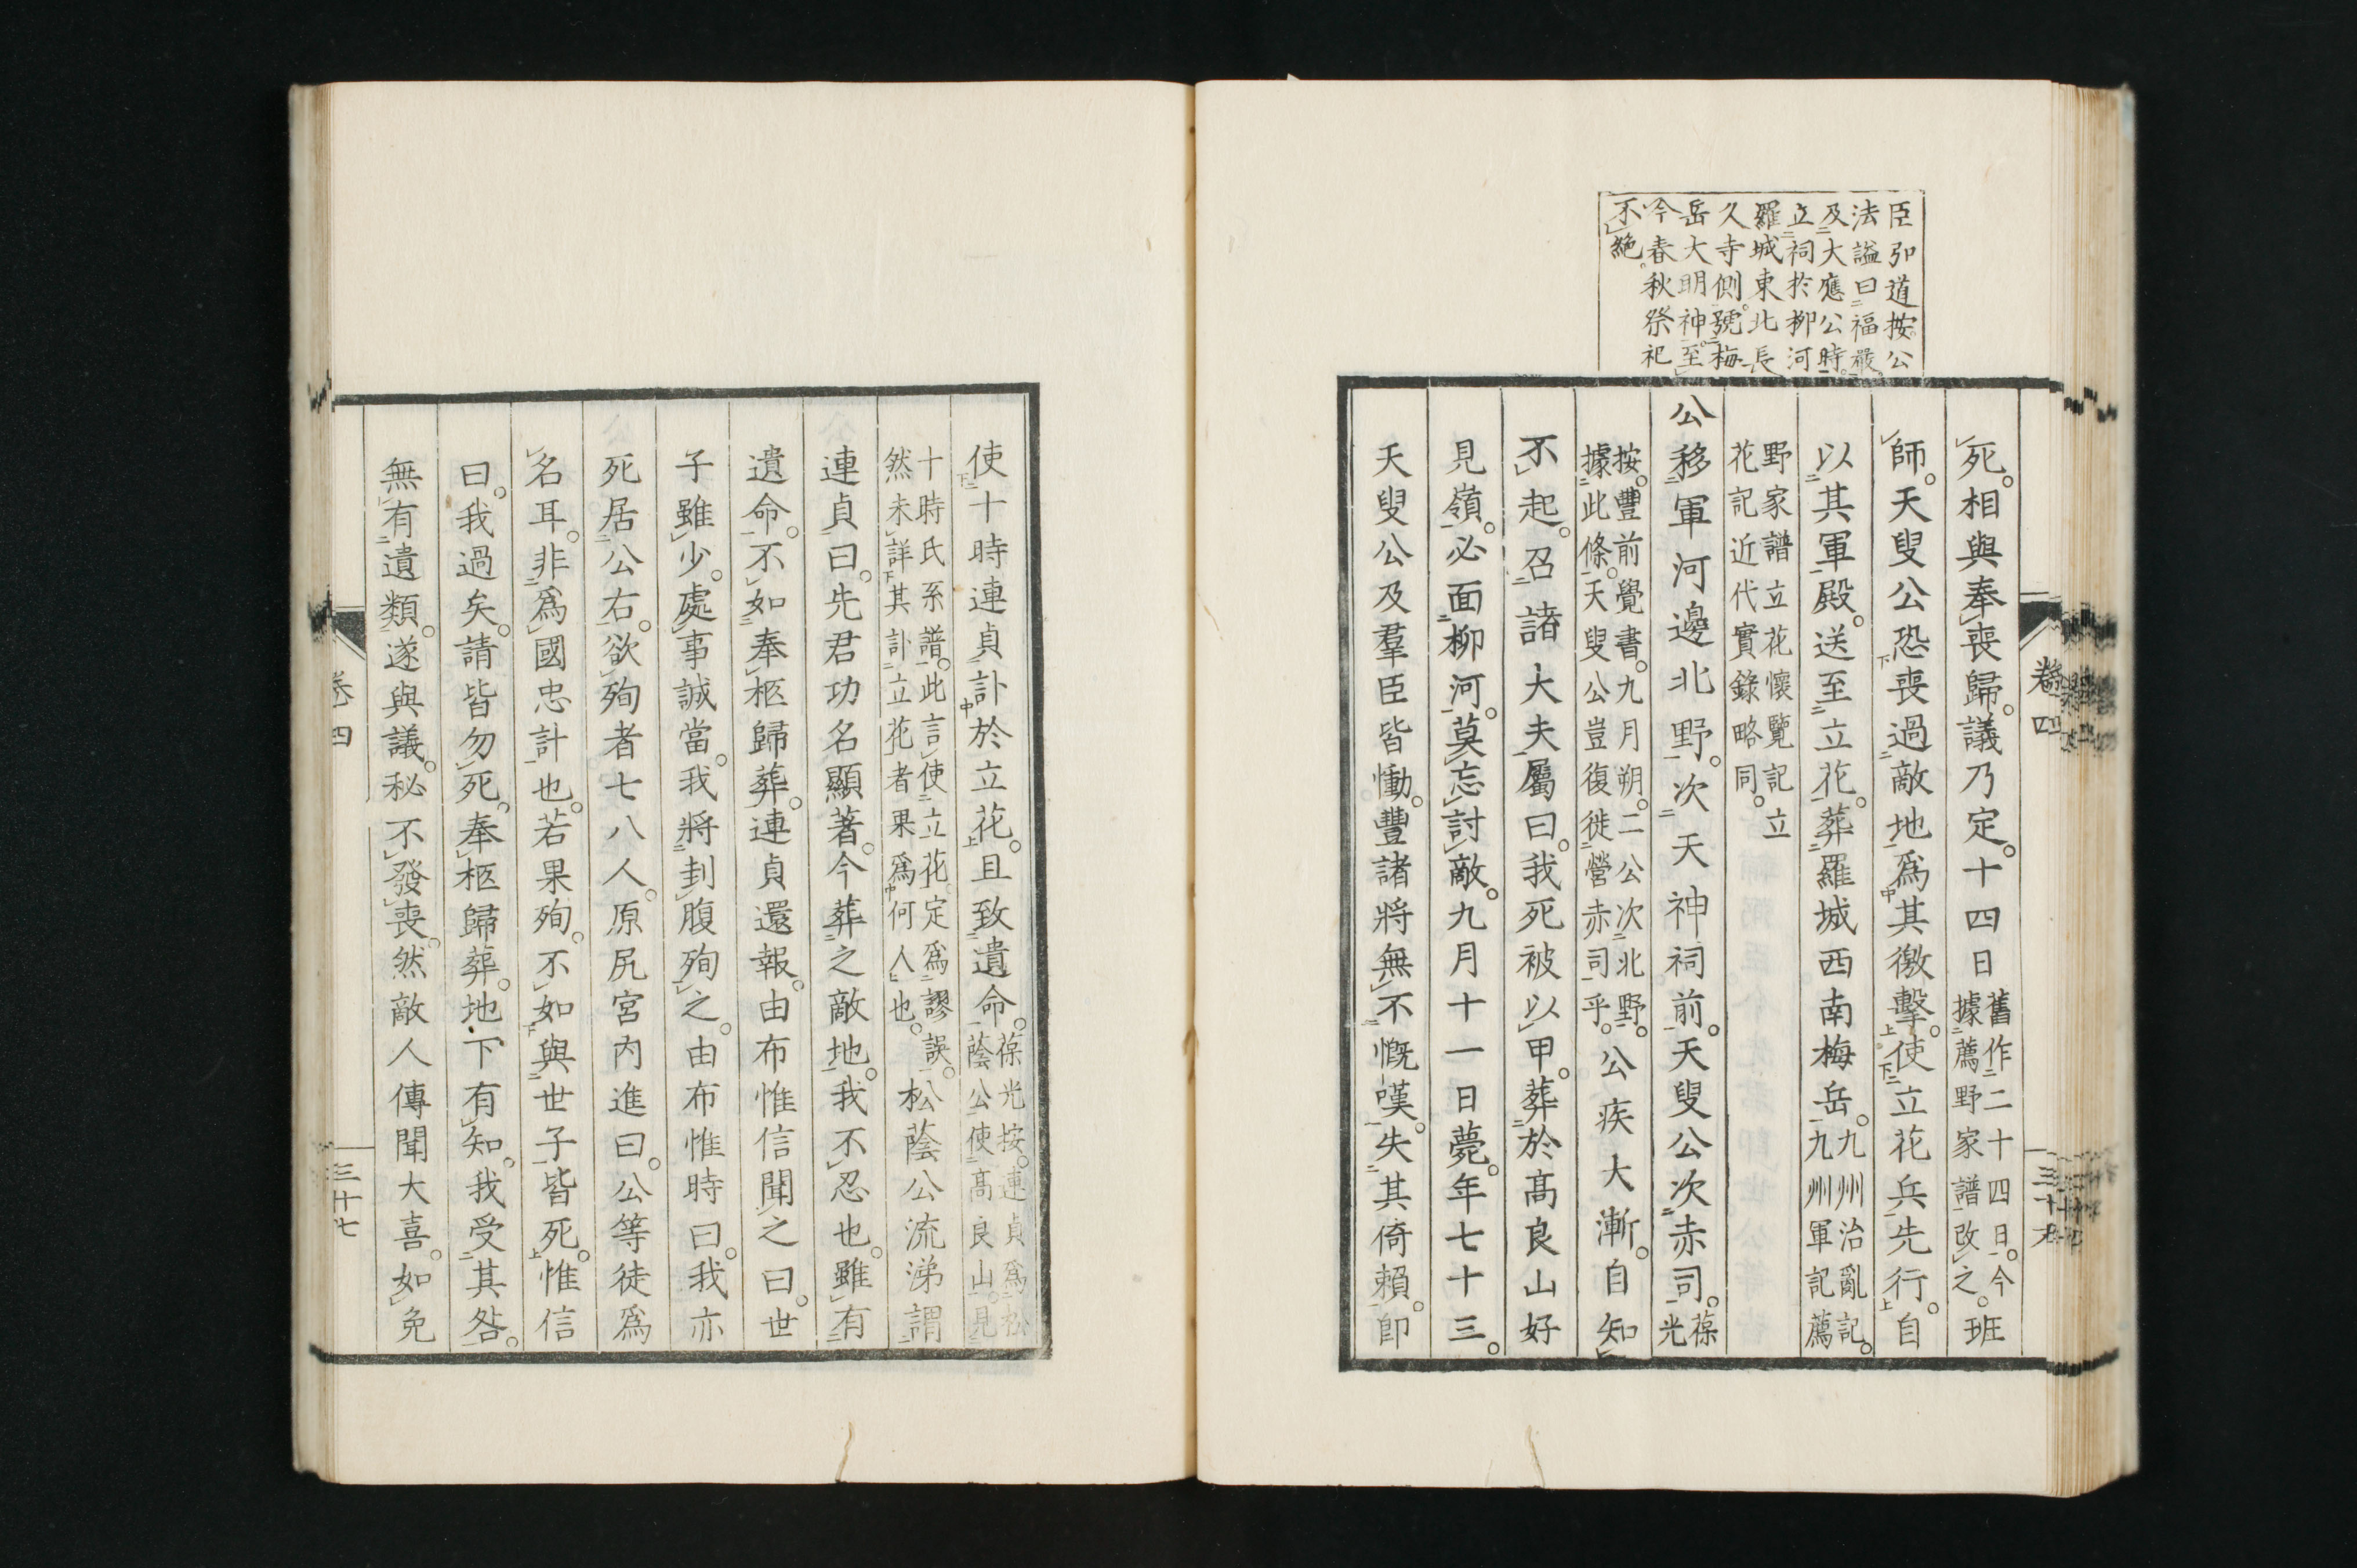 臣弘道按。公
法謚曰福嚴。
及大應公時。
立祠於柳河
羅城東北長
久寺側。號梅
岳大明神。至
今春秋祭祀
不絶。
死。相與奉喪歸。議乃定。十四日舊作二十四日。今據薦野家譜改之。班
師。天叟公恐喪過敵地爲其徼擊。使立花兵先行。自
以其軍殿。送至立花。葬羅城西南梅岳。九州治亂記。九州軍記薦
野家譜立花懷覽記立花記近代實錄略同。
公移軍河邊北野。次天神祠前。天叟公次赤司。葆光
按。豐前覺書。九月朔。二公次北野。據此條。天叟公豈復徙營赤司乎。公疾大漸。自知
不起。召諸大夫屬曰。我死被以甲。葬於高良山好
見嶺。必面柳河。莫忘討敵。九月十一日薨。年七十三。
天叟公及羣臣皆慟。豐諸將無不慨嘆。失其倚賴。卽
卷四
使十時連貞訃於立花。且致遺命。葆光按。連貞爲松蔭公使高良山。見
十時氏系譜。此言使立花定爲謬誤。然未詳其訃立花者果爲何人也。松蔭公流涕謂
連貞曰。先君功名顯著。今葬之敵地。我不忍也。雖有
遺命。不如奉柩歸葬。連貞還報。由布惟信聞之曰。世
子雖少。處事誠當。我將刲腹殉之。由布惟時曰。我亦
死居公右。欲殉者七八人。原尻宮內進曰。公等徒爲
名耳。非爲國忠計也。若果殉。不如與世子皆死。惟信
曰。我過矣。請皆勿死。奉柩歸葬。地下有知。我受其咎。
無有遺類。遂與議。秘不發喪。然敵人傳聞大喜。如免
卷四
三十七